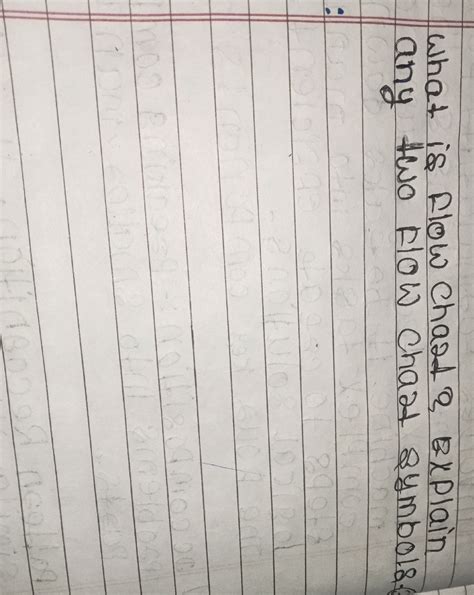 what is Flow chart &, Explain
any two Flow chart symbols?